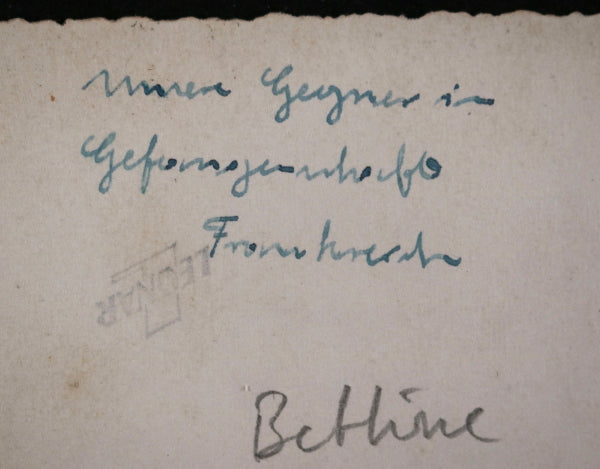 Unsere Gegner in
Gefangenschaft
Frankreich
LEONAR
Bettine